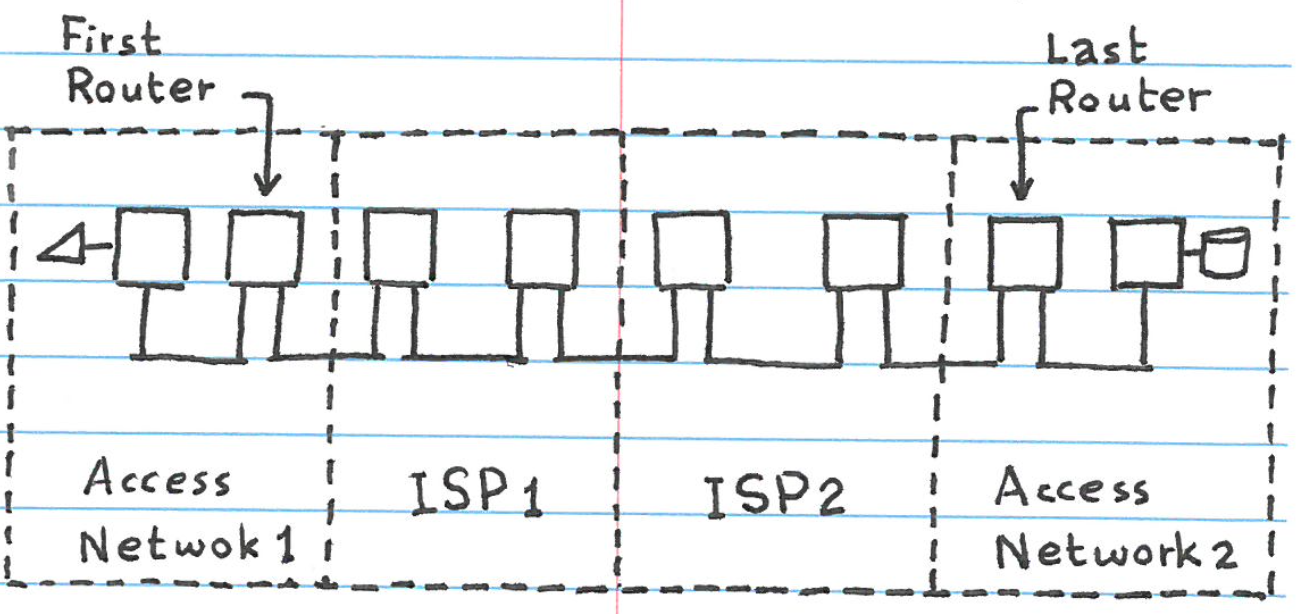 First
Router
Last
Router
Access
Netwok 1
ISP1
ISP2
Access
Network 2